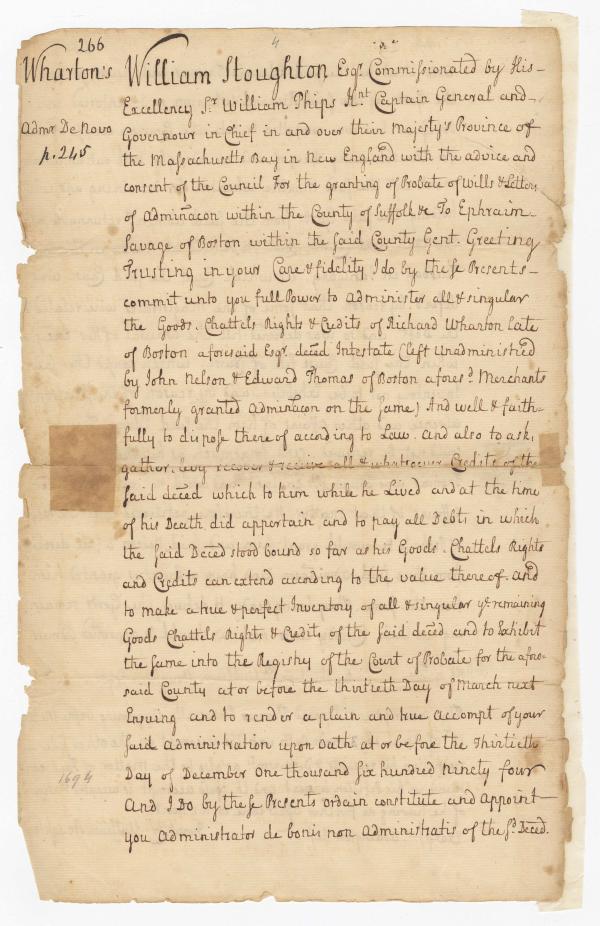 266
4
Wharton's
Admr De Novo
p. 245
William Stoughton Esqr. Commissionated by His
Excellency Sr. William Phips Knt. Captain General and
Governour in Chief in and over their Majesty's Province of
the Massachusetts Bay in New England with the advice and
consent of the Council For the granting of Probate of Wills & Letters
of Adminacon within the County of Suffolk &c To Ephraim
Savage of Boston within the said County Gent. Greeting
Trusting in your Care & fidelity I do by these Presents
commit unto you full Power to Administer all & singular
the Goods. Chattels Rights & Credits of Richard Wharton late
of Boston aforesaid Esqr. deced Intestate (left Unadministred
by John Nelson & Edward Thomas of Boston afores.d Merchants
formerly granted Adminacon on the same) And well & faith-
fully to dispose thereof according to Law. And also to ask,
gather, levy recover & receive all & whatsoever Credits of the
said deced which to him while he Lived and at the time
of his Death did appertain and to pay all Debts in which
the said Deced stood bound so far as his Goods. Chattels Rights
and Credits can extend according to the value thereof. And
to make a true & perfect Inventory of all & singular ye. remaining
Goods Chattels Rights & Credits of the said deced and to Exhibit
the same into the Registry of the Court of Probate for the afore-
said County at or before the thirtieth Day of March next
Ensuing and to render a plain and true accompt of your
said administration upon Oath at or before the Thirtieth
1694
Day of December One thousand six hundred Ninety four
And I Do by these Presents ordain constitute and appoint
you Administrator de bonis non Administratis of the sd. Deced.